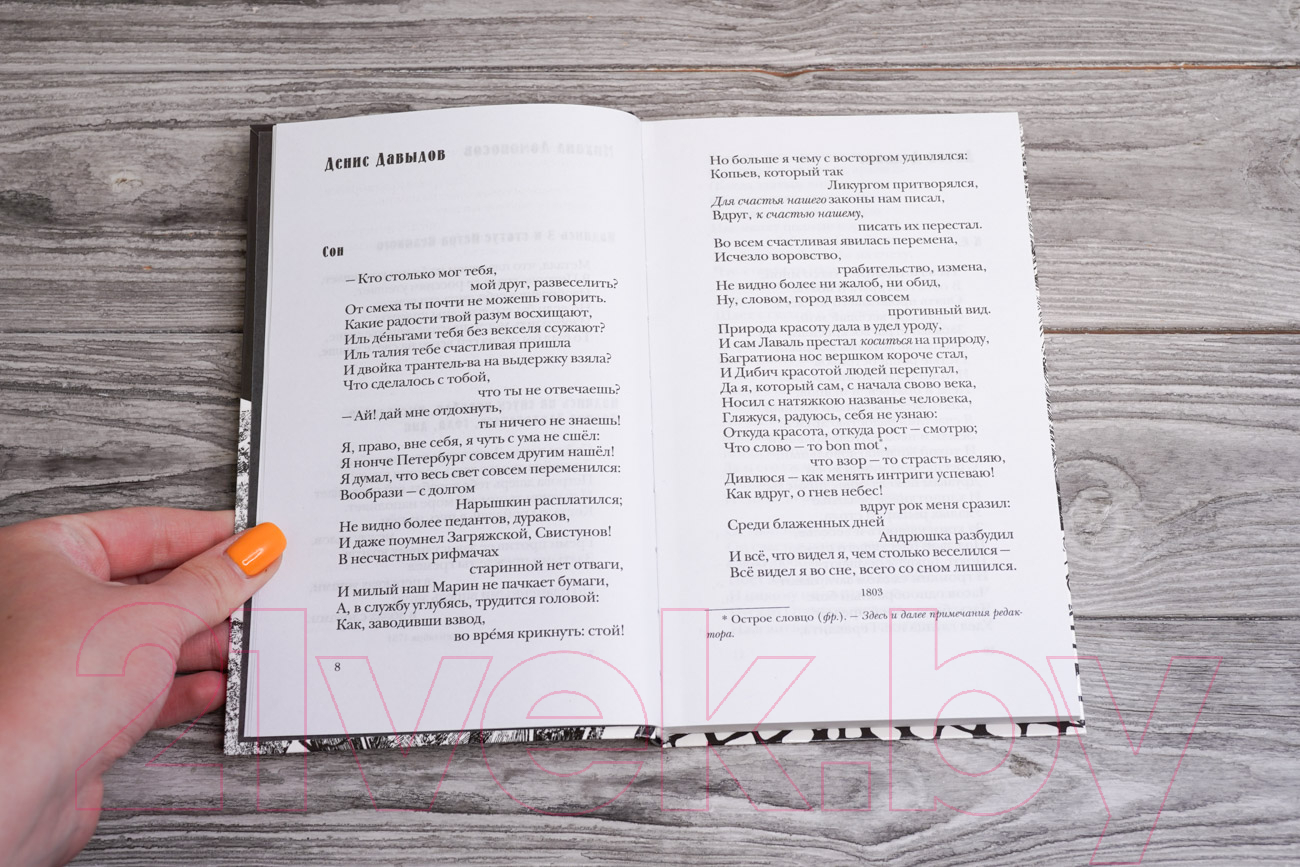 Денис Давыдов
Сон
— Кто столько мог тебя,
мой друг, развеселить?
От смеха ты почти не можешь говорить.
Какие радости твой разум восхищают,
Иль де́ньгами тебя без векселя ссужают?
Иль талия тебе счастливая пришла
И двойка трантель-ва на выдержку взяла?
Что сделалось с тобой,
что ты не отвечаешь?
— Ай! дай мне отдохнуть,
ты ничего не знаешь!
Я, право, вне себя, я чуть с ума не сшёл:
Я нонче Петербург совсем другим нашёл!
Я думал, что весь свет совсем переменился:
Вообрази — с долгом
Нарышкин расплатился;
Не видно более педантов, дураков,
И даже поумнел Загряжской, Свистунов!
В несчастных рифмачах
старинной нет отваги,
И милый наш Марин не пачкает бумаги,
А, в службу углубясь, трудится головой:
Как, заводивши взвод,
во вре́мя крикнуть: стой!
8
Но больше я чему с восторгом удивлялся:
Копьев, который так
Ликургом притворялся,
Для счастья нашего законы нам писал,
Вдруг, к счастью нашему,
писать их перестал.
Во всем счастливая явилась перемена,
Исчезло воровство,
грабительство, измена,
Не видно более ни жалоб, ни обид,
Ну, словом, город взял совсем
противный вид.
Природа красоту дала в удел уроду,
И сам Лаваль престал коситься на природу,
Багратиона нос вершком короче стал,
И Дибич красотой людей перепугал,
Да я, который сам, с начала свово века,
Носил с натяжкою названье человека,
Гляжуся, радуюсь, себя не узнаю:
Откуда красота, откуда рост — смотрю;
Что слово — то bon mot*,
что взор — то страсть вселяю,
Дивлюся — как менять интриги успеваю!
Как вдруг, о гнев небес!
вдруг рок меня сразил:
Среди блаженных дней
Андрюшка разбудил
И всё, что видел я, чем столько веселился —
Всё видел я во сне, всего со сном лишился.
1803
* Острое словцо (фр.). — Здесь и далее примечания редак-
тора.
21vek.by